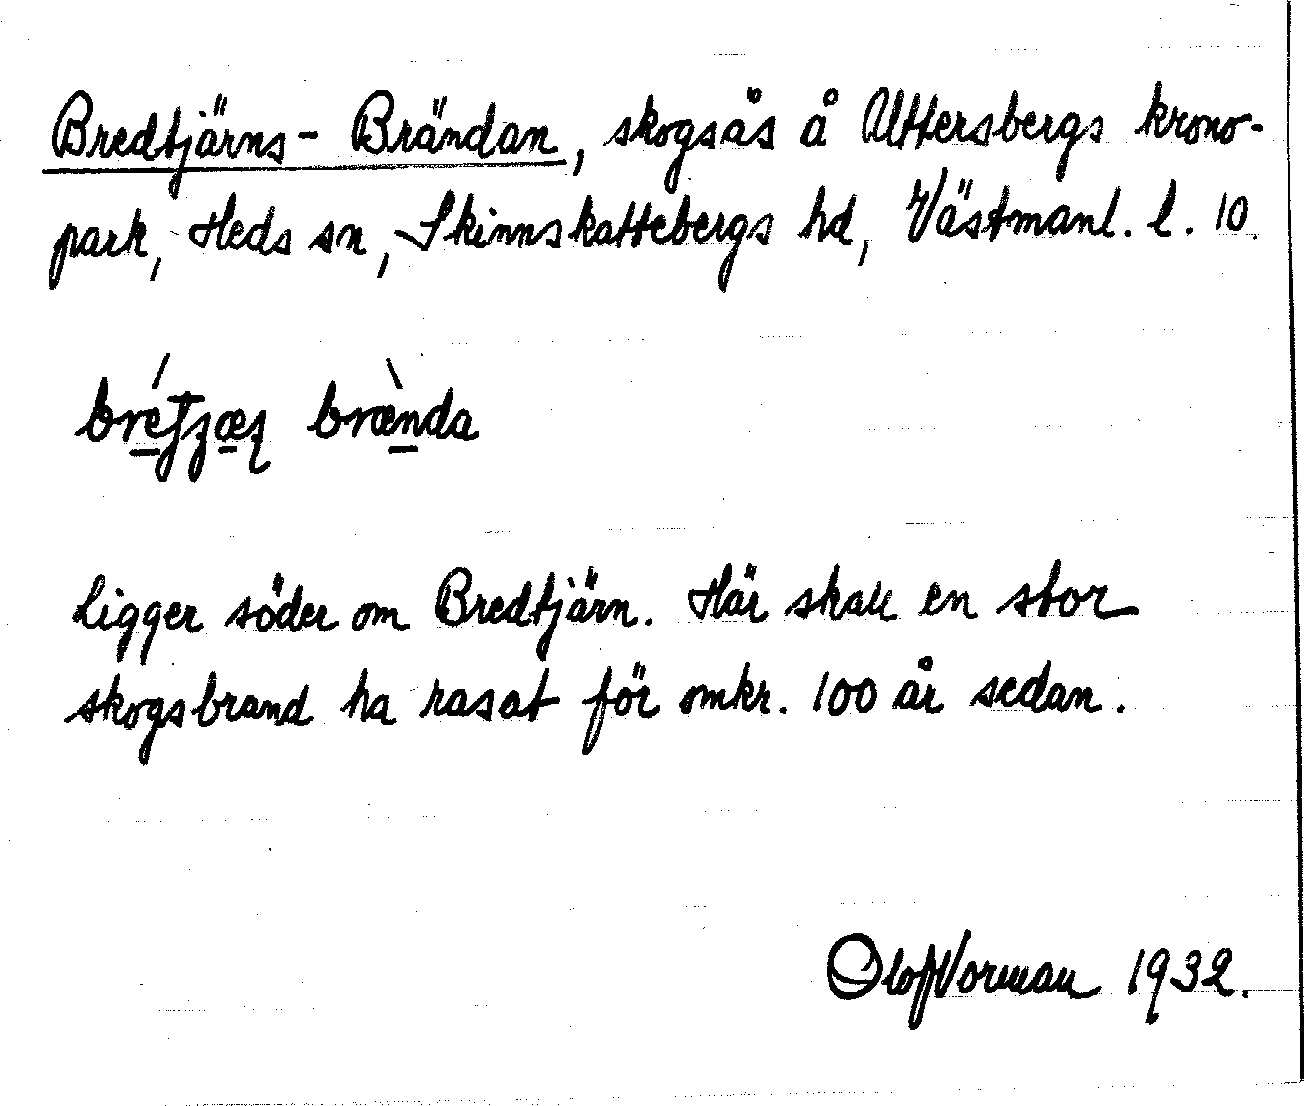 Bredtjärns- Brändan, skogsås å Uttersbergs krono-
park, Heds sn, Skinnskattebergs hd, Västmanl. l. 10.
brænda
Ligger söder om Bredtjärn. Här skall en stor
skogsbrand ha rasat för omkr. 100 år sedan.
Olof Norman 1932.